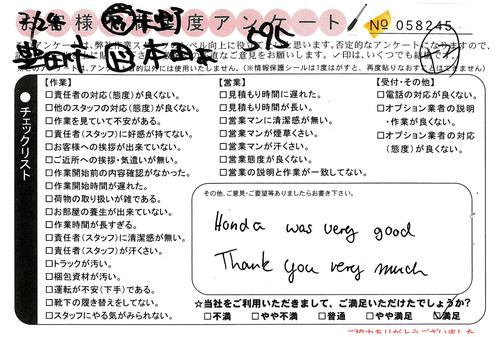 お客様 度アンケート
№ 058245
595
●チェックリスト
【作業】
□責任者の対応(態度)が良くない。
□他のスタッフの対応(態度)が良くない。
□作業を見ていて不安がある。
□責任者(スタッフ)に好感が持てない。
□お客様への挨拶が出来ていない。
□ご近所への挨拶・気遣いが無い。
□作業開始前の内容確認がなかった。
□作業開始時間が遅れた。
□荷物の取り扱いが雑である。
□お部屋の養生が出来ていない。
□作業時間が長すぎる。
□責任者(スタッフ)に清潔感が無い。
□責任者(スタッフ)が汗くさい。
□トラックが汚い。
□梱包資材が汚い。
□運転が不安(下手)である。
□靴下の履き替えをしてない。
□スタッフにやる気がみられない。
【営業】
□見積もり時間に遅れた。
□見積もり時間が長い。
□営業マンに清潔感が無い。
□営業マンが煙草くさい。
□営業マンが汗くさい。
□営業態度が良くない。
□営業の説明と作業が一致してない。
【受付・その他】
□電話の対応が良くない。
□オプション業者の説明
・作業が良くない。
□オプション業者の対応
(態度)が良くない。
その他、ご意見・ご要望等ありましたらお書き下さい。
Honda was very good
Thank you very much
☆当社をご利用いただきまして、ご満足いただけたでしょうか?
□不満 □やや不満 □普通 □やや満足 □満足
ご協力ありがとうございました